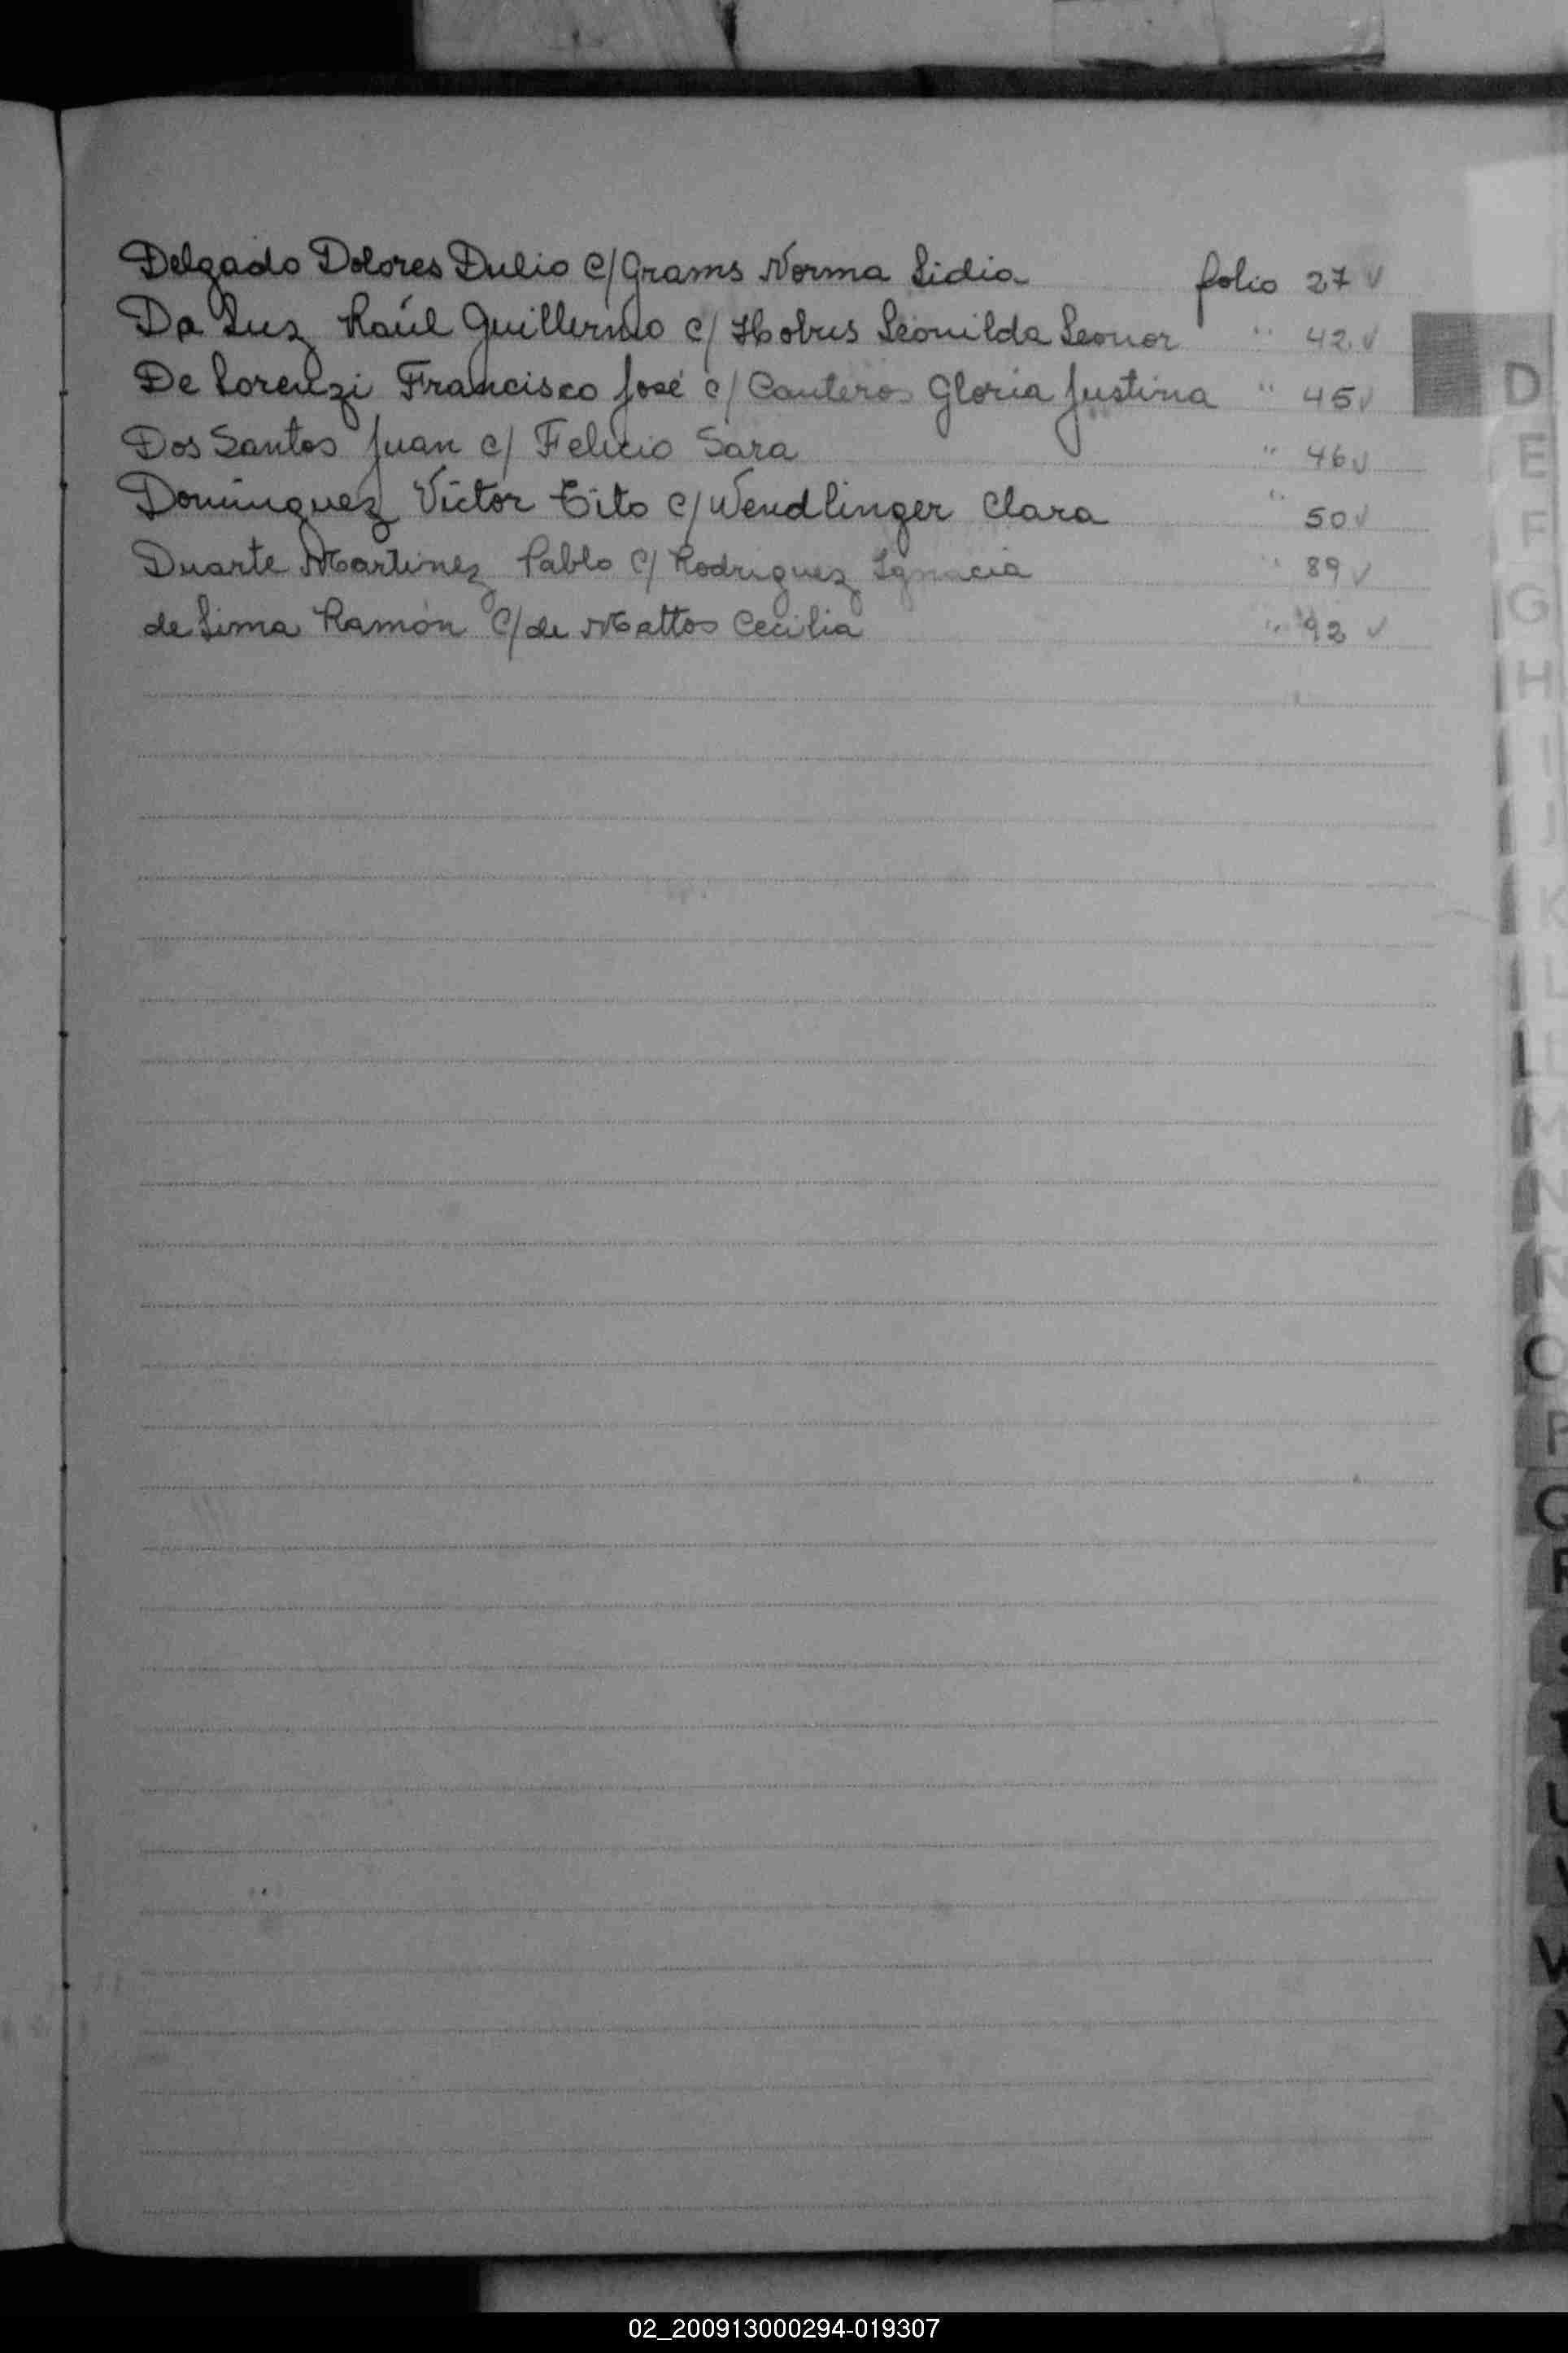 Delgado Dolores Dulio c/ Grams Norma Lidia folio 27 ✓
Da Luz Raúl Guillermo c/ Hobus Leonilda Leonor " 42 ✓
De Lorenzi Francisco José c/ Canteros Gloria Justina " 45 ✓
Dos Santos Juan c/ Felicio Sara " 46 ✓
Dominguez Víctor Tito c/ Wendlinger Clara " 50 ✓
Duarte Martinez Pablo c/ Rodriguez Ignacia " 89 ✓
de Lima Ramón c/ de Mattos Cecilia " 92 ✓
D
E
F
G
H
I
J
K
L
M
N
O
P
Q
R
S
T
U
V
W
X
02_200913000294-019307